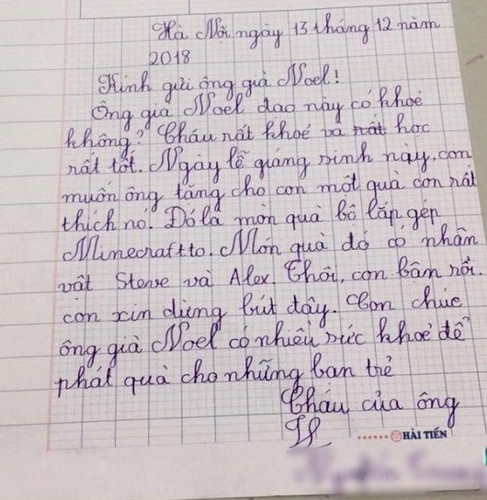 Hà Nội ngày 13 tháng 12 năm
2018
Kính gửi ông già Noel!
Ông già Noel dạo này có khoẻ
không? Cháu rất khoẻ và rất học
rất tốt. Ngày lễ giáng sinh này, con
muốn ông tặng cho con một quà con rất
thích nó. Đó là món quà bộ lắp gép
Minecraft to. Món quà đó có nhân
vật Steve và Alex. Thôi, con bận rồi.
con xin dừng bút đây. Con chúc
ông già Noel có nhiều sức khoẻ để
phát quà cho những bạn trẻ
Cháu của ông
HẢI TIẾN